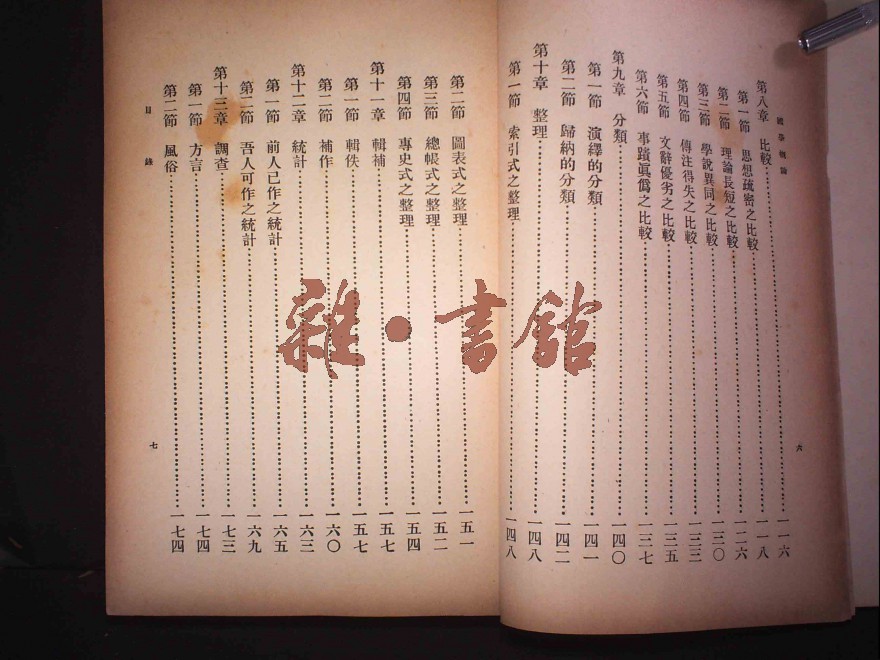 國學概論
第八章 比較 一一六
第一節 思想疏密之比較 一一八
第二節 理論長短之比較 一二六
第三節 學說異同之比較 一三〇
第四節 傳注得失之比較 一三三
第五節 文辭優劣之比較 一三五
第六節 事蹟眞僞之比較 一三七
第九章 分類 一四〇
第一節 演繹的分類 一四一
第二節 歸納的分類 一四二
第十章 整理 一四八
第一節 索引式之整理 一四八
六
第二節 圖表式之整理 一五一
第三節 總帳式之整理 一五二
第四節 專史式之整理 一五四
第十一章 輯補 一五七
第一節 輯佚 一五七
第二節 補作 一六〇
第十二章 統計 一六三
第一節 前人已作之統計 一六五
第二節 吾人可作之統計 一六九
第十三章 調查 一七三
第一節 方言 一七四
第二節 風俗 一七四
目錄
七
雜·書館